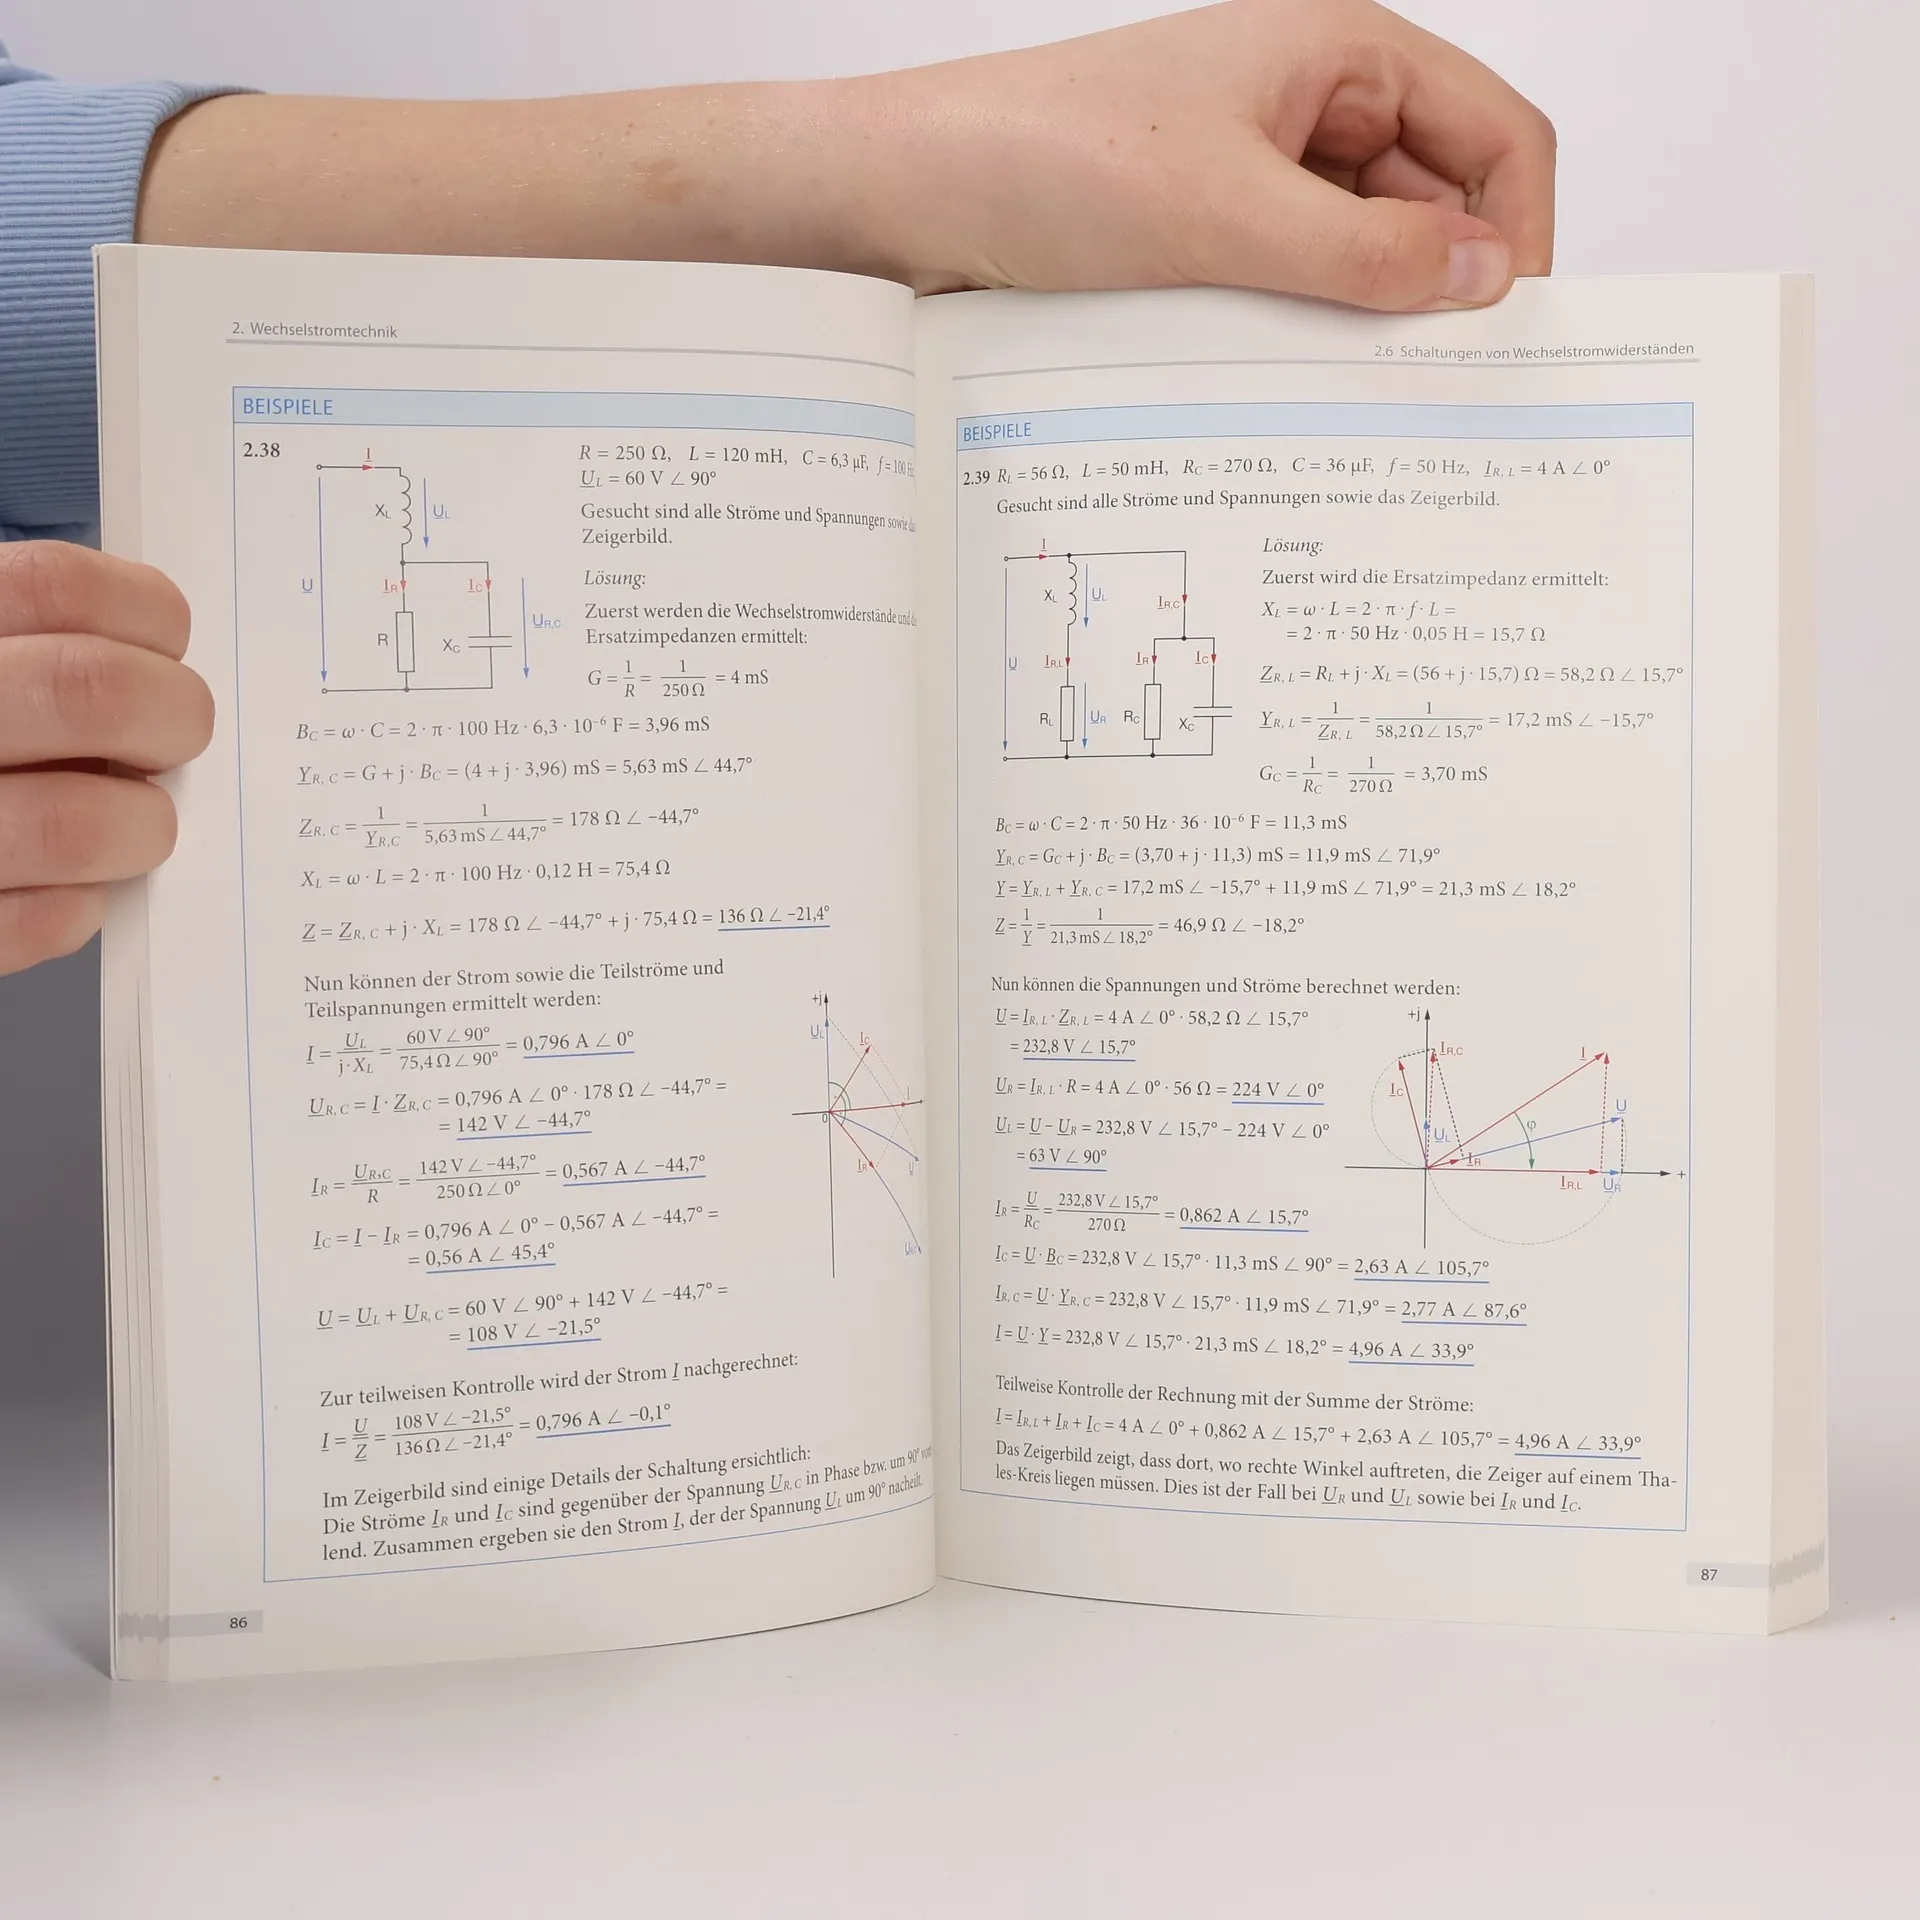 2. Wechselstromtechnik
BEISPIELE
2.38
R = 250 Ω, L = 120 mH, C = 6,3 µF, f = 100 Hz
U̲L = 60 V ∠ 90°
Gesucht sind alle Ströme und Spannungen sowie
Zeigerbild.
Lösung:
Zuerst werden die Wechselstromwiderstände und
Ersatzimpedanzen ermittelt:
G = 1/R = 1/250 Ω = 4 mS
I̲
XL U̲L
U̲ I̲R I̲C
U̲R,C
R XC
BC = ω · C = 2 · π · 100 Hz · 6,3 · 10⁻⁶ F = 3,96 mS
Y̲R, C = G + j · BC = (4 + j · 3,96) mS = 5,63 mS ∠ 44,7°
Z̲R, C = 1/Y̲R,C = 1/5,63 mS ∠ 44,7° = 178 Ω ∠ −44,7°
XL = ω · L = 2 · π · 100 Hz · 0,12 H = 75,4 Ω
Z̲ = Z̲R, C + j · XL = 178 Ω ∠ −44,7° + j · 75,4 Ω = 136 Ω ∠ −21,4°
Nun können der Strom sowie die Teilströme und
Teilspannungen ermittelt werden:
I̲ = U̲L/j·XL = 60 V ∠ 90°/75,4 Ω ∠ 90° = 0,796 A ∠ 0°
U̲R, C = I̲ · Z̲R, C = 0,796 A ∠ 0° · 178 Ω ∠ −44,7° =
= 142 V ∠ −44,7°
I̲R = U̲R,C/R = 142 V ∠ −44,7°/250 Ω ∠ 0° = 0,567 A ∠ −44,7°
I̲C = I̲ − I̲R = 0,796 A ∠ 0° − 0,567 A ∠ −44,7° =
= 0,56 A ∠ 45,4°
U̲ = U̲L + U̲R, C = 60 V ∠ 90° + 142 V ∠ −44,7° =
= 108 V ∠ −21,5°
+j
U̲L
I̲C
I̲
0
I̲R
U̲
Zur teilweisen Kontrolle wird der Strom I̲ nachgerechnet:
I̲ = U̲/Z̲ = 108 V ∠ −21,5°/136 Ω ∠ −21,4° = 0,796 A ∠ −0,1°
Im Zeigerbild sind einige Details der Schaltung ersichtlich:
Die Ströme I̲R und I̲C sind gegenüber der Spannung U̲R, C in Phase bzw. um 90°
lend. Zusammen ergeben sie den Strom I̲, der der Spannung U̲L um 90° nacheilt.
86
2.6 Schaltungen von Wechselstromwiderständen
BEISPIELE
2.39 RL = 56 Ω, L = 50 mH, RC = 270 Ω, C = 36 µF, f = 50 Hz, I̲R, L = 4 A ∠ 0°
Gesucht sind alle Ströme und Spannungen sowie das Zeigerbild.
I̲
XL U̲L I̲R,C
U̲ I̲R,L I̲R I̲C
RL U̲R RC XC
Lösung:
Zuerst wird die Ersatzimpedanz ermittelt:
XL = ω · L = 2 · π · f · L =
= 2 · π · 50 Hz · 0,05 H = 15,7 Ω
Z̲R, L = RL + j · XL = (56 + j · 15,7) Ω = 58,2 Ω ∠ 15,7°
Y̲R, L = 1/Z̲R, L = 1/58,2 Ω ∠ 15,7° = 17,2 mS ∠ −15,7°
GC = 1/RC = 1/270 Ω = 3,70 mS
BC = ω · C = 2 · π · 50 Hz · 36 · 10⁻⁶ F = 11,3 mS
Y̲R, C = GC + j · BC = (3,70 + j · 11,3) mS = 11,9 mS ∠ 71,9°
Y̲ = Y̲R, L + Y̲R, C = 17,2 mS ∠ −15,7° + 11,9 mS ∠ 71,9° = 21,3 mS ∠ 18,2°
Z̲ = 1/Y̲ = 1/21,3 mS ∠ 18,2° = 46,9 Ω ∠ −18,2°
Nun können die Spannungen und Ströme berechnet werden:
U̲ = I̲R, L · Z̲R, L = 4 A ∠ 0° · 58,2 Ω ∠ 15,7°
= 232,8 V ∠ 15,7°
U̲R = I̲R, L · R = 4 A ∠ 0° · 56 Ω = 224 V ∠ 0°
U̲L = U̲ − U̲R = 232,8 V ∠ 15,7° − 224 V ∠ 0°
= 63 V ∠ 90°
I̲R = U̲/RC = 232,8 V ∠ 15,7°/270 Ω = 0,862 A ∠ 15,7°
+j
I̲R,C
I̲
I̲C
U̲
U̲L
φ
I̲R
+
I̲R,L U̲R
I̲C = U̲ · B̲C = 232,8 V ∠ 15,7° · 11,3 mS ∠ 90° = 2,63 A ∠ 105,7°
I̲R, C = U̲ · Y̲R, C = 232,8 V ∠ 15,7° · 11,9 mS ∠ 71,9° = 2,77 A ∠ 87,6°
I̲ = U̲ · Y̲ = 232,8 V ∠ 15,7° · 21,3 mS ∠ 18,2° = 4,96 A ∠ 33,9°
Teilweise Kontrolle der Rechnung mit der Summe der Ströme:
I̲ = I̲R, L + I̲R + I̲C = 4 A ∠ 0° + 0,862 A ∠ 15,7° + 2,63 A ∠ 105,7° = 4,96 A ∠ 33,9°
Das Zeigerbild zeigt, dass dort, wo rechte Winkel auftreten, die Zeiger auf einem Tha-
les-Kreis liegen müssen. Dies ist der Fall bei U̲R und U̲L sowie bei I̲R und I̲C.
87